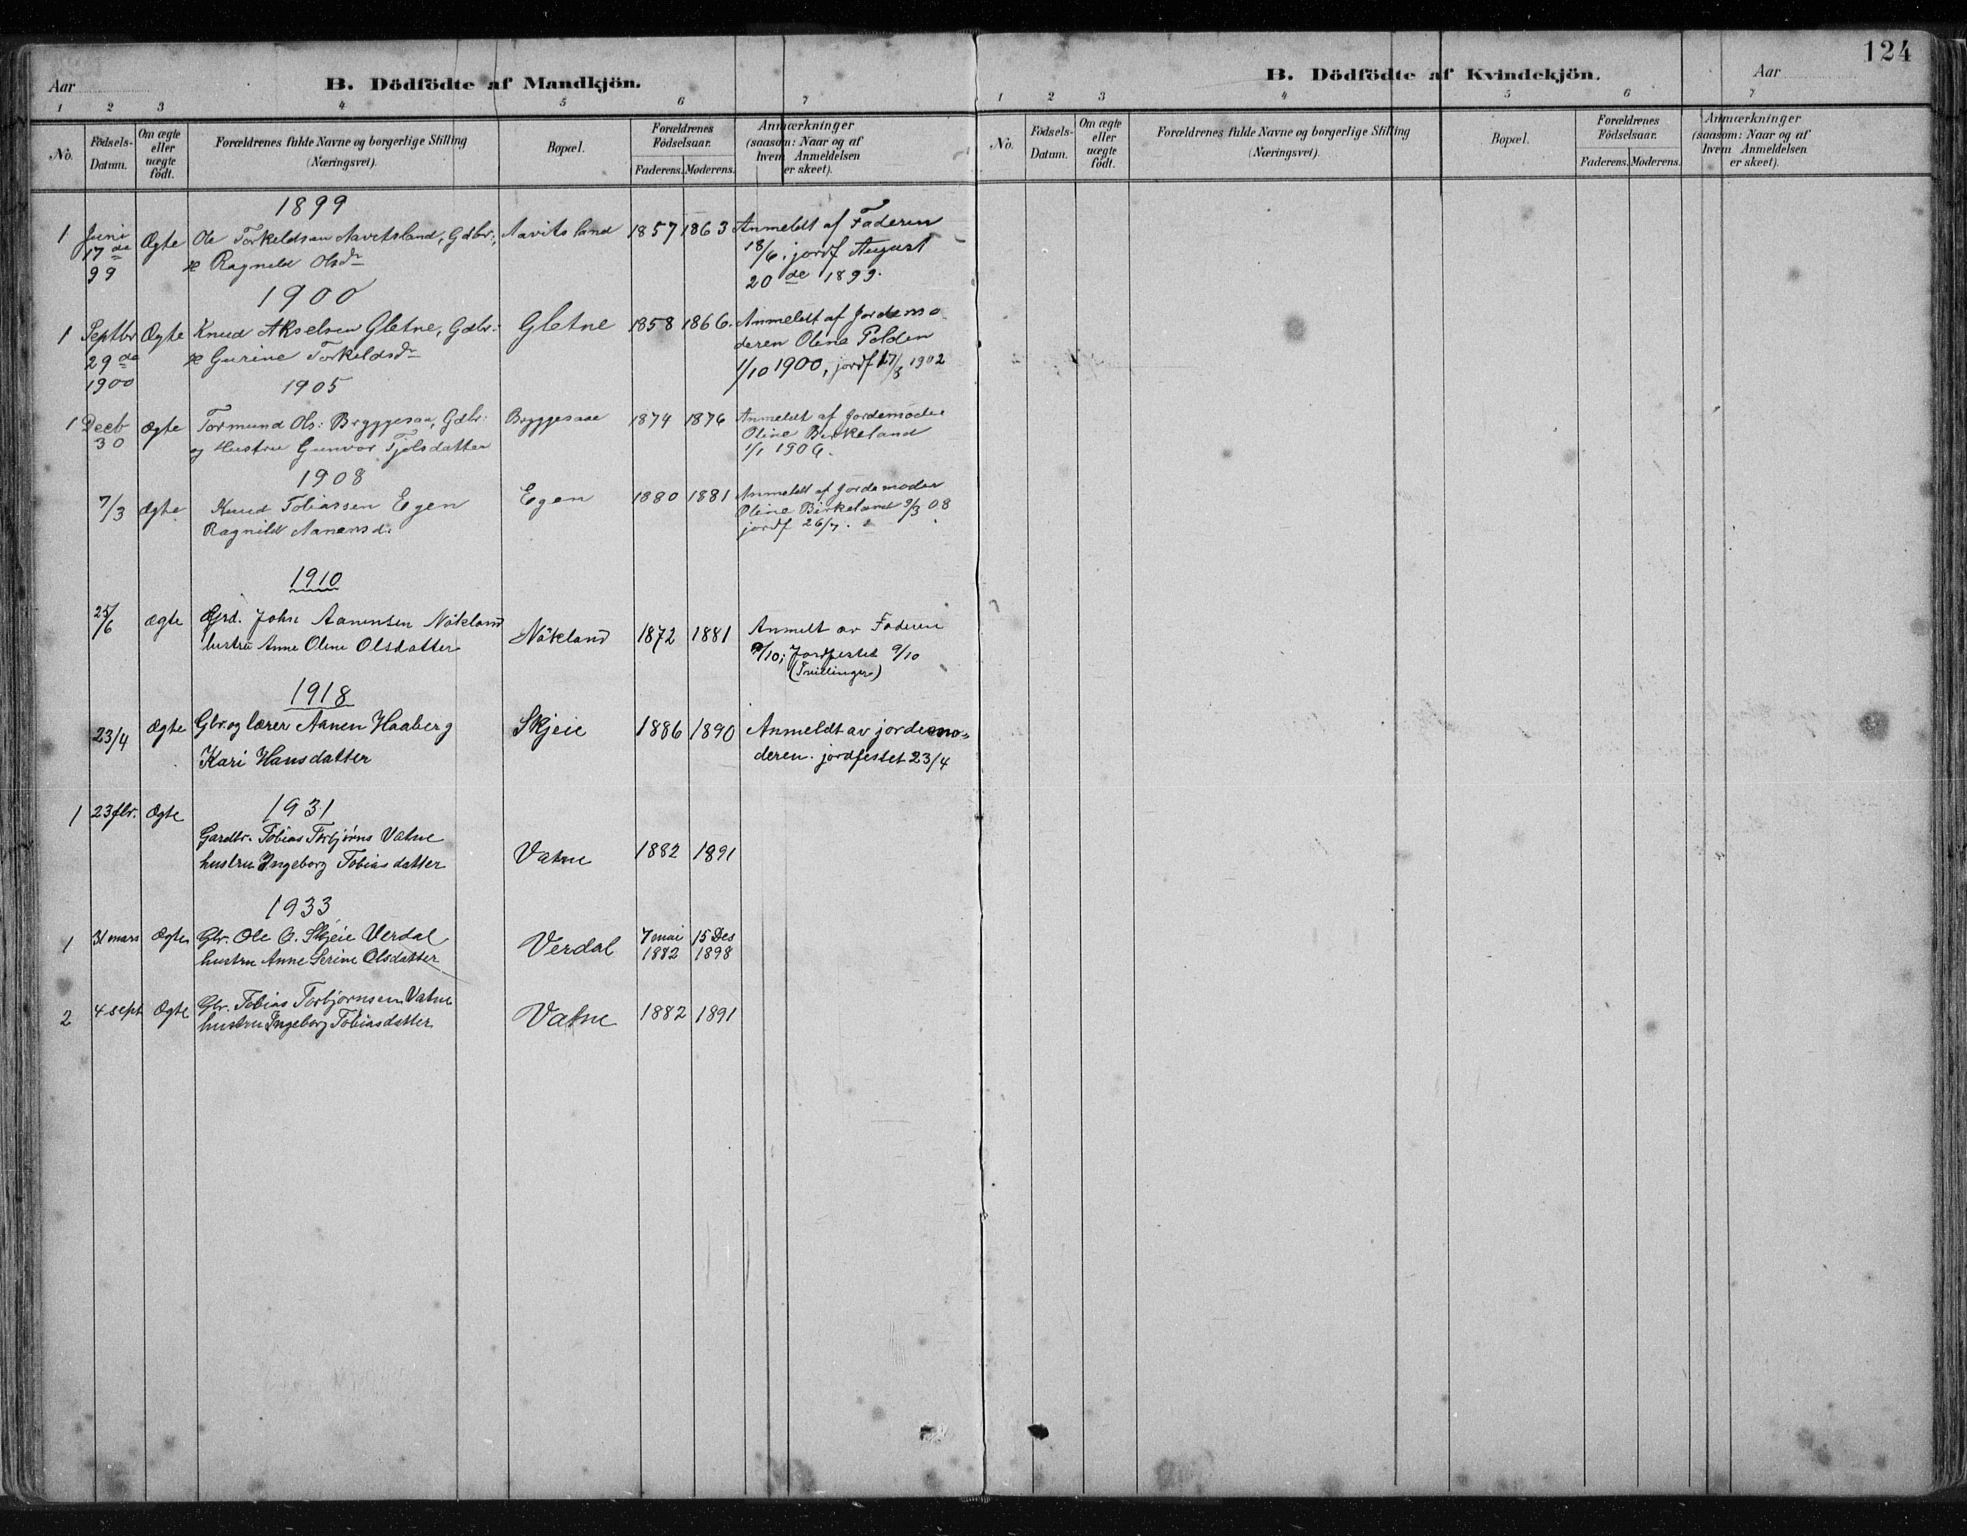 124
Aar
B. Dödfödte af Mandkjön.
1 2 3 4 5 6 7
No.
Födsels-
Datum.
Om ægte
eller
uægte
födt.
Forældrenes fulde Navne og borgerlige Stilling
(Næringsvei).
Bopæl.
Forældrenes
Födselsaar.
Faderens. Moderens.
Anmærkninger
(saasom: Naar og af
hvem Anmeldelsen
er skeet).
1899
1 Juni Ægte Ole Torkeldsen Aavitsland, Gdbr., Aavitsland 1857 1863 Anmeldt af Faderen
17de & Ragnild Olsdr 18/6, jordf August
99 20de 1899.
1900
1 Septbr Ægte Knud Akselsen Gletne, Gdbr: Gletne 1858 1866. Anmeldt af Jordemo
29de & Gurine Torkeldsdr deren Oline Polden
1900 1/10 1900, jordf 17/3 1902
1905
1 Decb Ægte Tormund Ols: Bryggesaa, Gdbr: Bryggesaa 1874 1876 Anmeldt af Jordemoder
30 og Hustru Gunvor Tjølsdatter Oline Birkeland
1/1 1906.
1908
7/3 Ægte Knud Tobiassen Egen Egen 1880 1881 Anmeldt af Jordemoder
Ragnild Aanensd. Oline Birkeland 9/3 08
jordf 26/7.
1910
25/6 Ægte Gjrd. John Aanensen Nökland Nökland 1872 1881 Anmelt av Faderen
hustru Anne Oline Olsdatter 9/10; Jordfestet 9/10
(Tvillinger)
1918
23/4 Ægte Gbr. og lærer Aanen Haaberg Skjeie 1886 1890 Anmeldt av jordemo-
Kari Hansdatter deren. jordfestet 23/4
1931
1 23 fbr. Ægte
Gardbr. Tobias Torbjørns Vatne
hustru Ingeborg Tobiasdatter Vatne 1882 1891
1933
1 31 mars Ægte Gbr. Ole O. Skjeie Verdal Verdal 7 mai 15 Des
hustru Anne Serine Olsdatter 1882 1898
2 4 sept Ægte Gbr. Tobias Torbjørnsen Vatne Vatne 1882 1891
hustru Ingeborg Tobiasdatter
B. Dödfödte af Kvindekjön.
Aar
1 2 3 4 5 6 7
No.
Födsels-
Datum.
Om ægte
eller
uægte
födt.
Forældrenes fulde Navne og borgerlige Stilling
(Næringsvei).
Bopæl.
Forældrenes
Födselsaar.
Faderens. Moderens.
Anmærkninger
(saasom: Naar og af
hvem Anmeldelsen
er skeet).